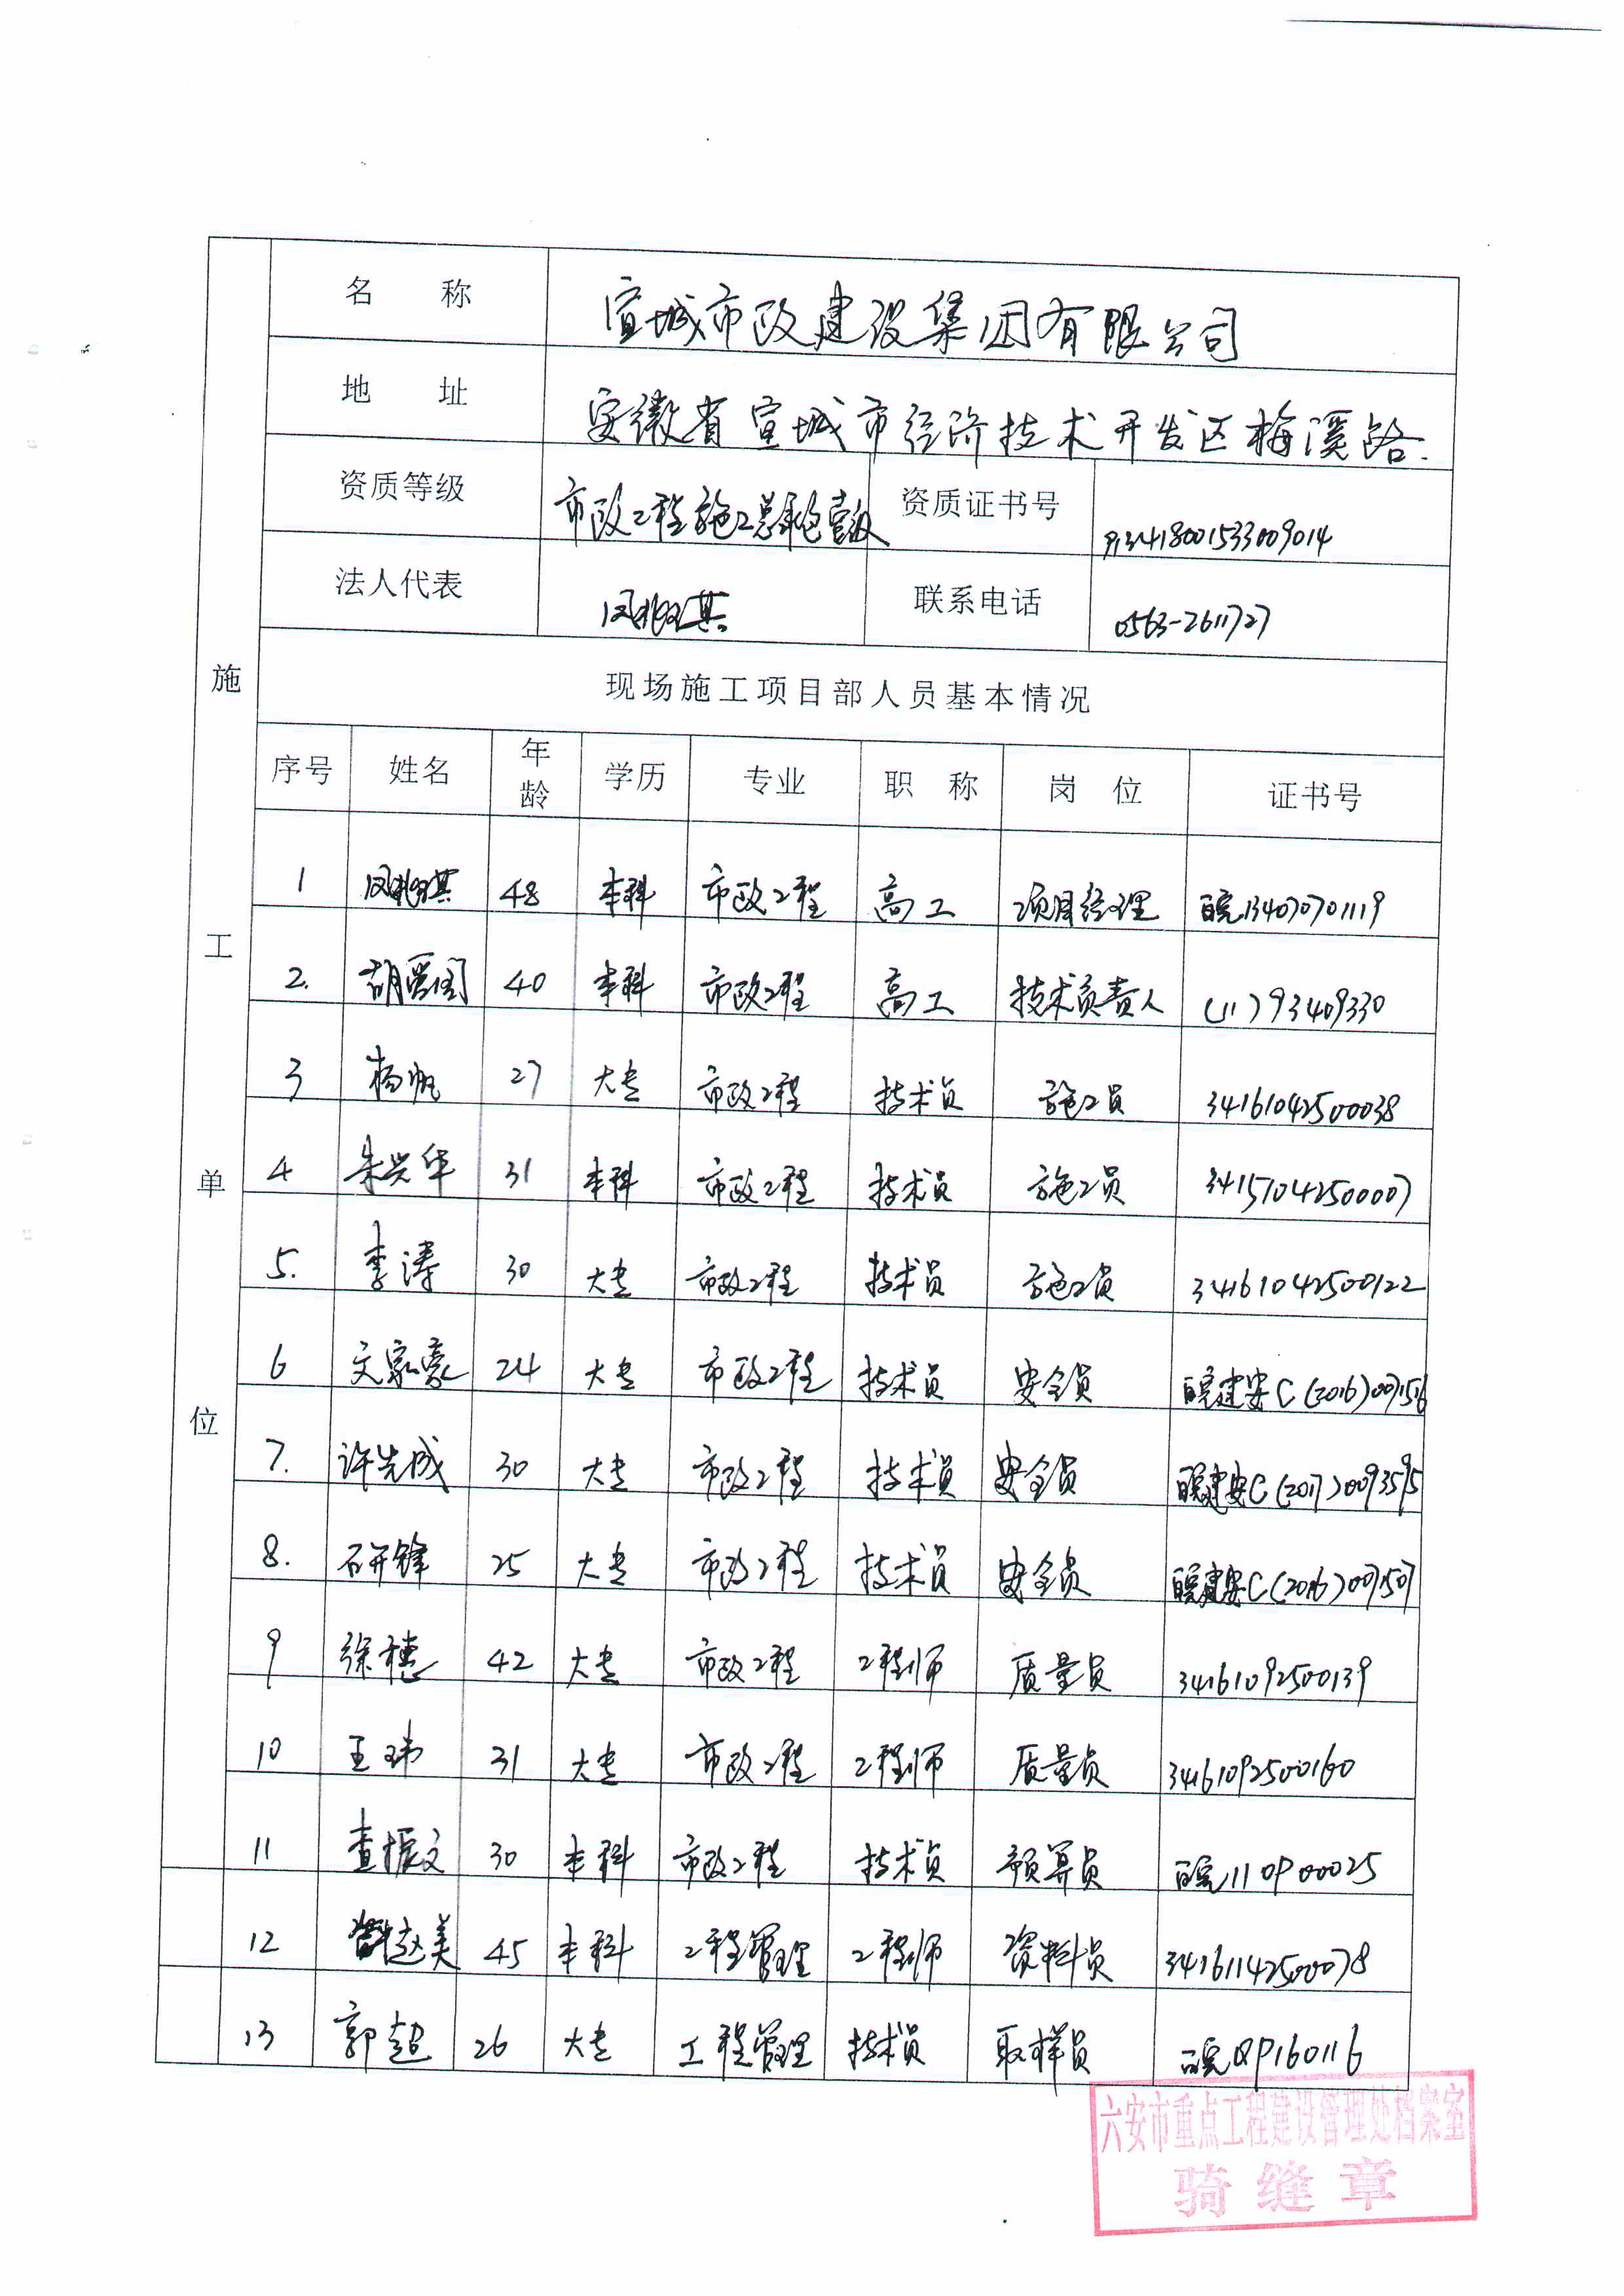 名 称 宣城市政建设集团有限公司
地 址 安徽省宣城市经济技术开发区梅溪路.
资质等级 市政工程施工总承包壹级 资质证书号 913418001533009014
法人代表 联系电话 0563-2611727
施工单位
现场施工项目部人员基本情况
序号 姓名 年龄 学历 专业 职 称 岗 位 证书号
1 48 本科 市政工程 高工 项目经理 皖134070701119
2. 40 本科 市政工程 高工 技术负责人 (11)93409330
3 杨帆 27 大专 市政工程 技术员 施工员 34161042500038
4 朱兴华 31 本科 市政工程 技术员 施工员 34151042500007
5. 李涛 30 大专 市政工程 技术员 施工员 34161042500122
6 文家豪 24 大专 市政工程 技术员 安全员 皖建安C(2016)0071516
7. 许先成 30 大专 市政工程 技术员 安全员 皖建安C(2017)0093595
8. 石开锋 25 大专 市政工程 技术员 安全员 皖建安C(2016)0071507
9 徐穗 42 大专 市政工程 工程师 质量员 34161092500139
10 王玮 31 大专 市政工程 工程师 质量员 34161092500160
11 查振文 30 本科 市政工程 技术员 预算员 皖110P00025
12 45 本科 工程管理 工程师 资料员 34161142500078
13 郭超 26 大专 工程管理 技术员 取样员 皖QP160116
六安市重点工程建设管理处档案室
骑缝章